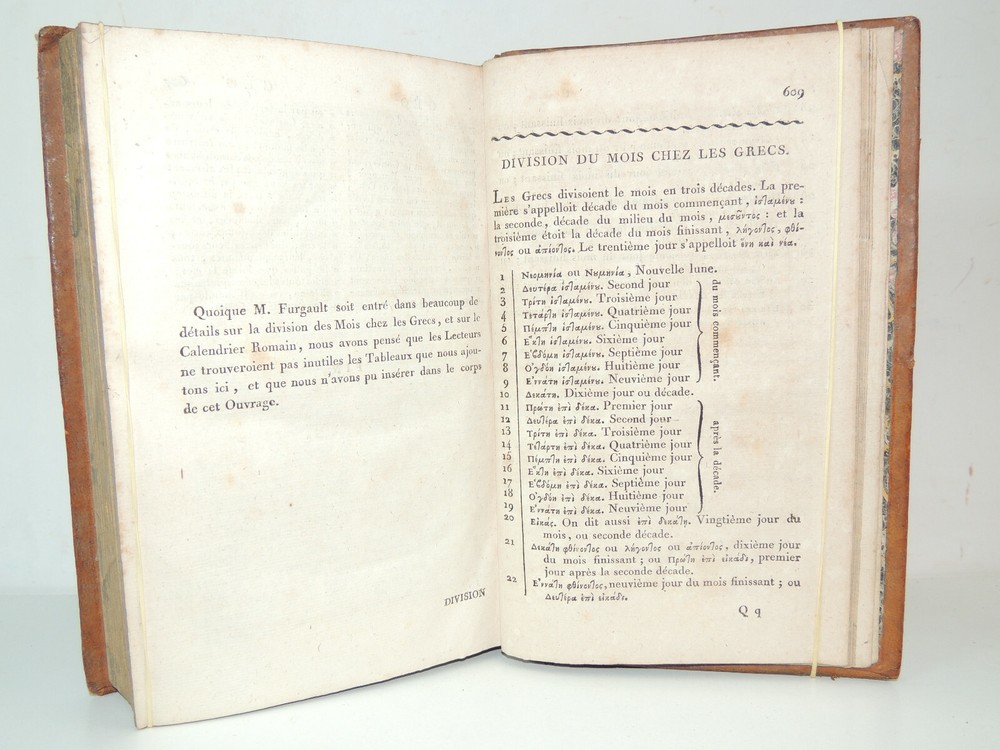 Quoique M. Furgault soit entré dans beaucoup de
détails sur la division des Mois chez les Grecs, et sur le
Calendrier Romain, nous avons pensé que les Lecteurs
ne trouveroient pas inutiles les Tableaux que nous ajou-
tons ici, et que nous n'avons pu insérer dans le corps
de cet Ouvrage.
DIVISION
609
DIVISION DU MOIS CHEZ LES GRECS.
LES Grecs divisoient le mois en trois décades. La pre-
mière s'appelloit décade du mois commençant, ἱσταμένου :
la seconde, décade du milieu du mois, μεσοῦντος : et la
troisième étoit la décade du mois finissant, λήγοντος, φθί-
νοντος ou ἀπιόντος. Le trentième jour s'appelloit ἕνη καὶ νέα.
1 Νεομηνία ou Νουμηνία, Nouvelle lune.
2 Δευτέρα ἱσταμένου. Second jour
3 Τρίτη ἱσταμένου. Troisième jour
4 Τετάρτη ἱσταμένου. Quatrième jour
5 Πέμπτη ἱσταμένου. Cinquième jour
6 Εκτη ἱσταμένου. Sixième jour
7 Εβδόμη ἱσταμένου. Septième jour
8 Ογδόη ἱσταμένου. Huitième jour
9 Εννάτη ἱσταμένου. Neuvième jour
du mois commençant.
10 Δεκάτη. Dixième jour ou décade.
11 Πρώτη ἐπὶ δέκα. Premier jour
12 Δευτέρα ἐπὶ δέκα. Second jour
13 Τρίτη ἐπὶ δέκα. Troisième jour
14 Τετάρτη ἐπὶ δέκα. Quatrième jour
15 Πέμπτη ἐπὶ δέκα. Cinquième jour
16 Εκτη ἐπὶ δέκα. Sixième jour
17 Εβδόμη ἐπὶ δέκα. Septième jour
18 Ογδόη ἐπὶ δέκα. Huitième jour
19 Εννάτη ἐπὶ δέκα. Neuvième jour
après la décade.
20 Εἰκάς. On dit aussi ἐπὶ δεκάτη. Vingtième jour du
mois, ou seconde décade.
21 Δεκάτη φθίνοντος ou λήγοντος ou ἀπιόντος, dixième jour
du mois finissant ; ou Πρώτη ἐπὶ εἰκάδι, premier
jour après la seconde décade.
22 Εννάτη φθίνοντος, neuvième jour du mois finissant ; ou
Δευτέρα ἐπὶ εἰκάδι.
Q q